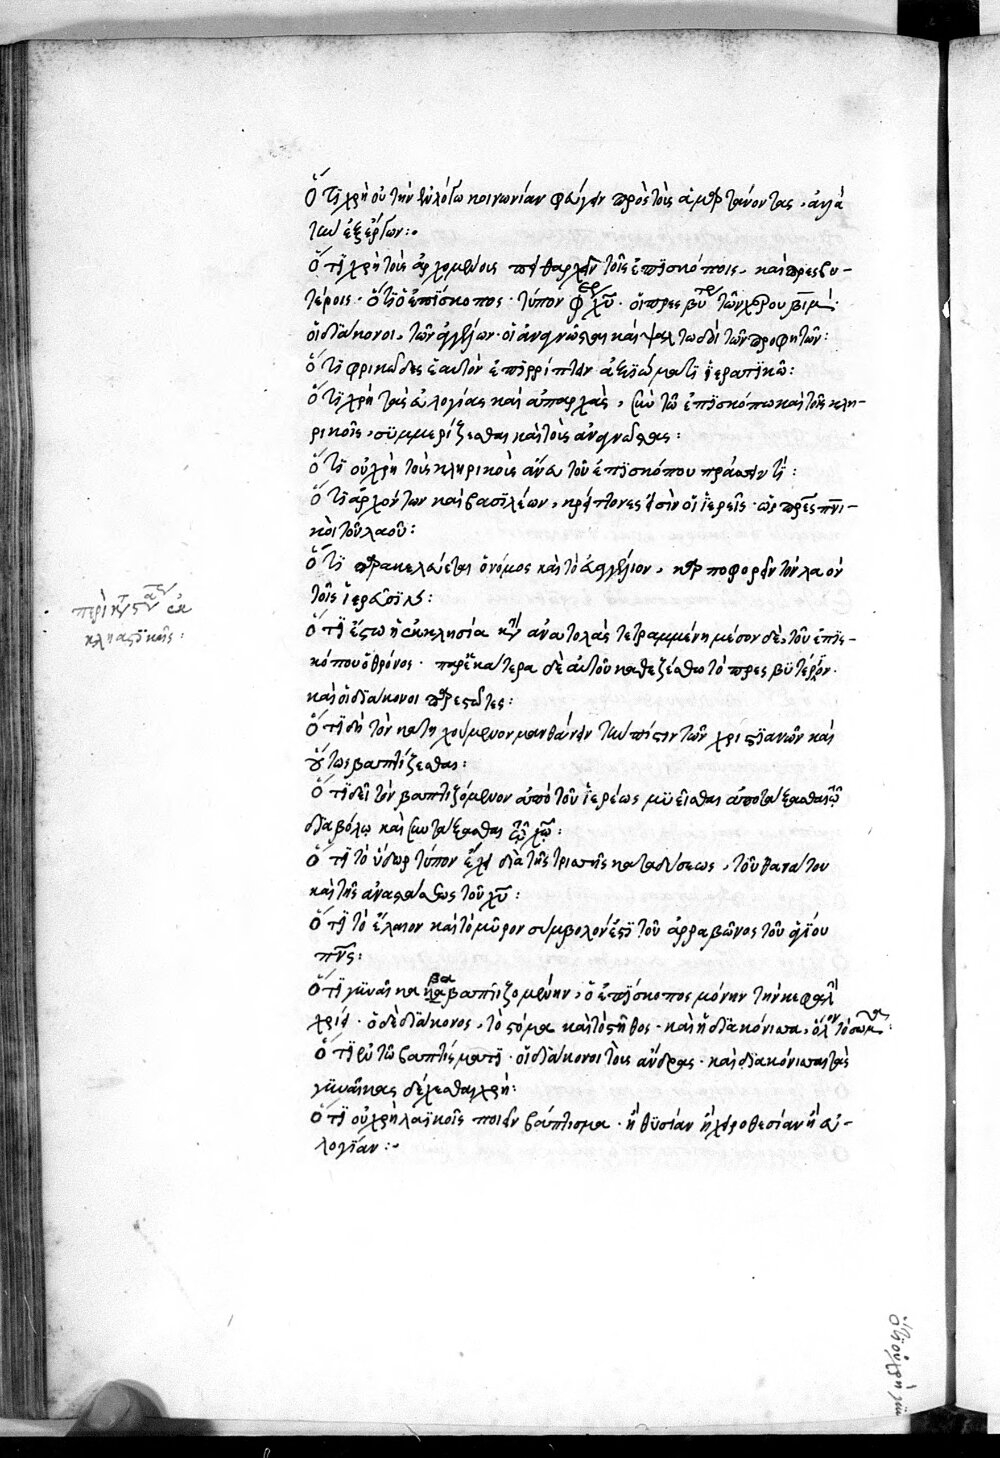 Ὅτι χρὴ οὐ τὴν ἐν λόγω κοινωνίαν φεύγειν πρὸς τοὺς ἁμαρτάνοντας, ἀλλὰ
τὴν ἐξ ἔργων:
Ὅτι χρὴ τοὺς ἀρχομένους πειθαρχεῖν τοῖς ἐπισκόποις, καὶ πρεσβυ-
τέροις· ὅτι ὁ ἐπίσκοπος τύπον φέρει χυ· οἱ πρεσβύτεροι τῶν
οἱ διάκονοι, τῶν ἀγγέλων· οἱ ἀναγνῶσται καὶ ψαλτωδοὶ τῶν προφητῶν:
Ὅτι φρικῶδες ἑαυτὸν ἐπιρρίπτειν ἀξιώματι ἱερατικῶ:
Ὅτι χρὴ τὰς εὐλογίας καὶ ἀπαρχὰς, σὺν τῶ ἐπισκόπω καὶ τοῖς κλη-
ρικοῖς, συμμερίζεσθαι καὶ τοὺς ἀναγνώστας:
Ὅτι οὐ χρὴ τοὺς κληρικοὺς ἄνευ τοῦ ἐπισκόπου πράττειν τί:
Ὅτι ἀρχόντων καὶ βασιλέων, κρείττονες εἰσὶν οἱ ἱερεῖς· ὡς πρες πνι-
κοὶ τοῦ λαοῦ:
Ὅτι παρακελεύεται ὁ νόμος καὶ τὸ εὐαγγέλιον, καρποφορεῖν τὸν λαὸν
τοῖς ἱερεῦσιν:
περὶ
κλησιαστικοῖς:
Ὅτι ἔστω ἡ ἐκκλησία κατὰ ἀνατολὰς τετραμμένη μέσον δὲ, τοῦ ἐπισ-
κόπου ὁ θρόνος· παρ' ἑκάτερα δὲ αὐτοῦ καθεζέσθω τὸ πρεσβυτέριον·
καὶ οἱ διάκονοι παρεστῶτες:
Ὅτι δεῖ τὸν κατηχούμενον μανθάνειν τὴν πίστιν τῶν χριστιανῶν καὶ
οὕτως βαπτίζεσθαι:
Ὅτι δεῖ τὸν βαπτιζόμενον ἀπὸ τοῦ ἱερέως μυεῖσθαι ἀποτάξασθαι τῶ
διαβόλω καὶ συντάξασθαι τῶ χω:
Ὅτι τὸ ὕδωρ τύπον ἔχει διὰ τῆς τριττῆς καταδύσεως, τοῦ θανάτου
καὶ τῆς ἀναστάσεως τοῦ χυ:
Ὅτι τὸ ἔλαιον καὶ τὸ μῦρον σύμβολον ἐστι τοῦ ἀρραβῶνος τοῦ ἁγίου
πνς:
Ὅτι γυναῖκα βαπτιζομένην, ὁ ἐπίσκοπος μόνην τὴν κεφαλὴν
χρίει· ὁ δὲ διάκονος, τὸ στόμα καὶ τὸ στῆθος· καὶ ἡ διακόνισσα, ὅλον τὸ σῶμα:
Ὅτι ἐν τῶ βαπτίσματι· οἱ διάκονοι τοὺς ἄνδρας· καὶ διακόνισσαι τὰς
γυναῖκας δέχεσθαι χρή:
Ὅτι οὐ χρὴ λαϊκοῖς ποιεῖν βάπτισμα· ἢ θυσίαν ἢ χειροθεσίαν ἢ εὐ-
λογίαν:
ὅτι οὐ χρὴ